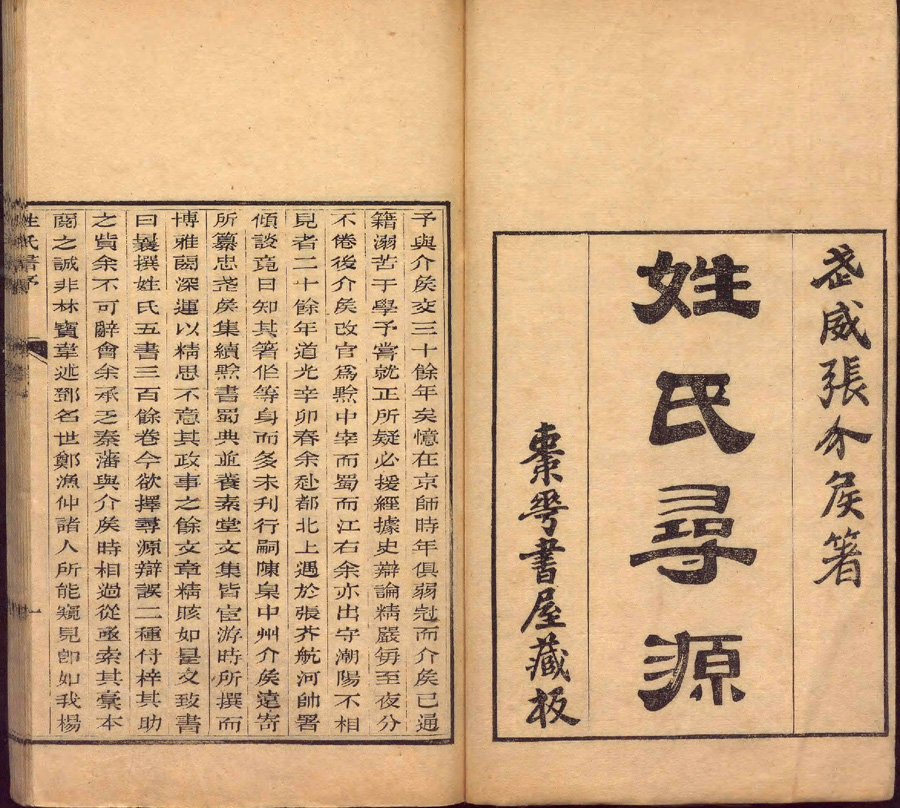 武威張介矦著
姓氏尋源
棗華書屋藏板
予與介矦交三十餘年矣憶在京師時年俱弱冠而介矦已通
籍溺苦于學予嘗就正所疑必援經據史辯論精嚴每至夜分
不倦後介矦改官爲黔中宰而蜀而江右余亦出守潮陽不相
見者二十餘年道光辛卯春余赴都北上遇於張芥航河帥署
傾談竟日知其箸作等身而多未刊行嗣陳臬中州介矦遠寄
所纂忠武矦集續黔書蜀典並養素堂文集皆宦游時所撰而
博雅閎深運以精思不意其政事之餘文章精賅如是又致書
曰曩撰姓氏五書三百餘卷今欲擇尋源辯誤二種付梓其助
之貲余不可辭會余承乏秦藩與介矦時相過從亟索其稾本
閱之誠非林寶韋述鄧名世鄭漁仲諸人所能窺見卽如我楊
姓氏譜序
一